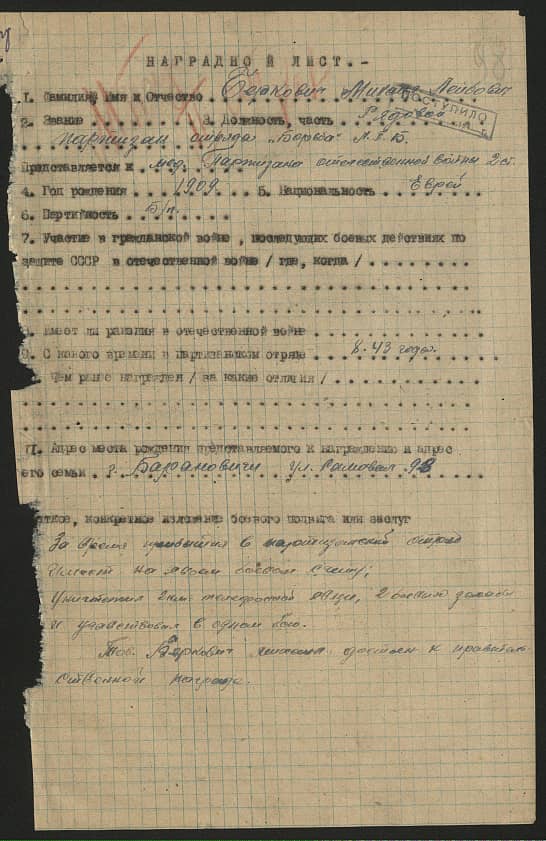 НАГРАДНОЙ ЛИСТ.-
1. Фамилия, Имя и Отчество Беркович Михаил Лейбович
ПОСТУПИЛО
2. Звание 3. Должность, часть Рядовой
партизан отряда "Борьба"
Представляется к мед. Партизана отечественной войны 2 ст.
4. Год рождения 1909 5. Национальность Еврей
6. Партийность б/п.
7. Участие в гражданской войне, последующих боевых действиях по
защите СССР в отечественной войне /где, когда/
8. Имеет ли ранения в отечественной войне
9. С какого времени в партизанском отряде 8.43 года.
Чем ранее награжден /за какие отличия/
11. Адрес места рождения представляемого к награждению и адрес
его семьи г. Барановичи ул.
конкретное изложение боевого подвига или заслуг
За время в партизанский отряд
имеет на своем боевом счету;
уничтожил 2 км. телефонной связи, 2
и участвовал в одном бою.
Тов. Беркович достоен к правитель-
ственной награде.